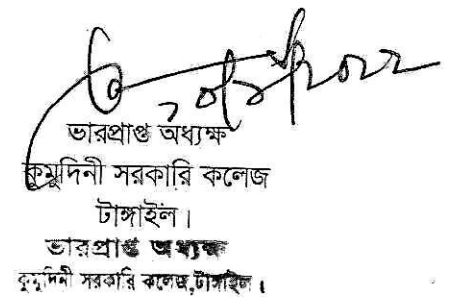 ভারপ্রাপ্ত অধ্যক্ষ
কুমুদিনী সরকারি কলেজ
টাঙ্গাইল।
ভারপ্রাপ্ত অধ্যক্ষ
কুমুদিনী সরকারি কলেজ,টাঙ্গাইল।